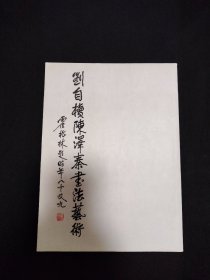 劉自櫝陳澤秦書法藝術
霍松林題時年八十又九